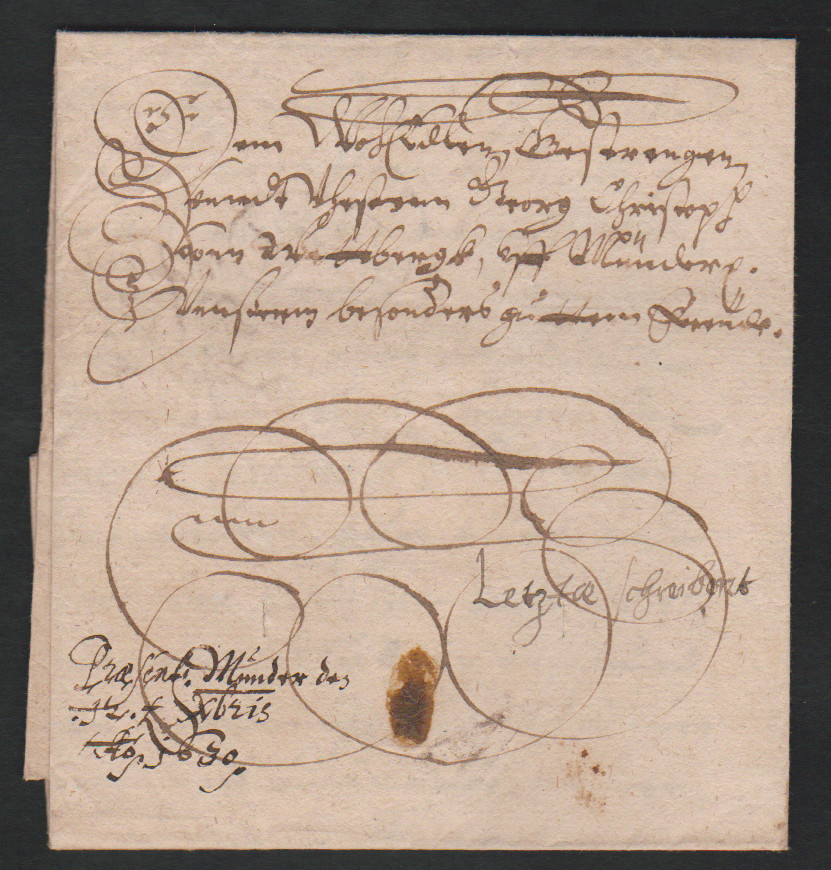 Dem WohlEdlen, Gestrengen
Vnndt Vhestenn Georg Christoph
vonn bergk, vff Münder p.
Vnserm besonders guttem Freunde.
Letzte schreiben
Præsent. Münder den
12. Xbris
Ao. 1630